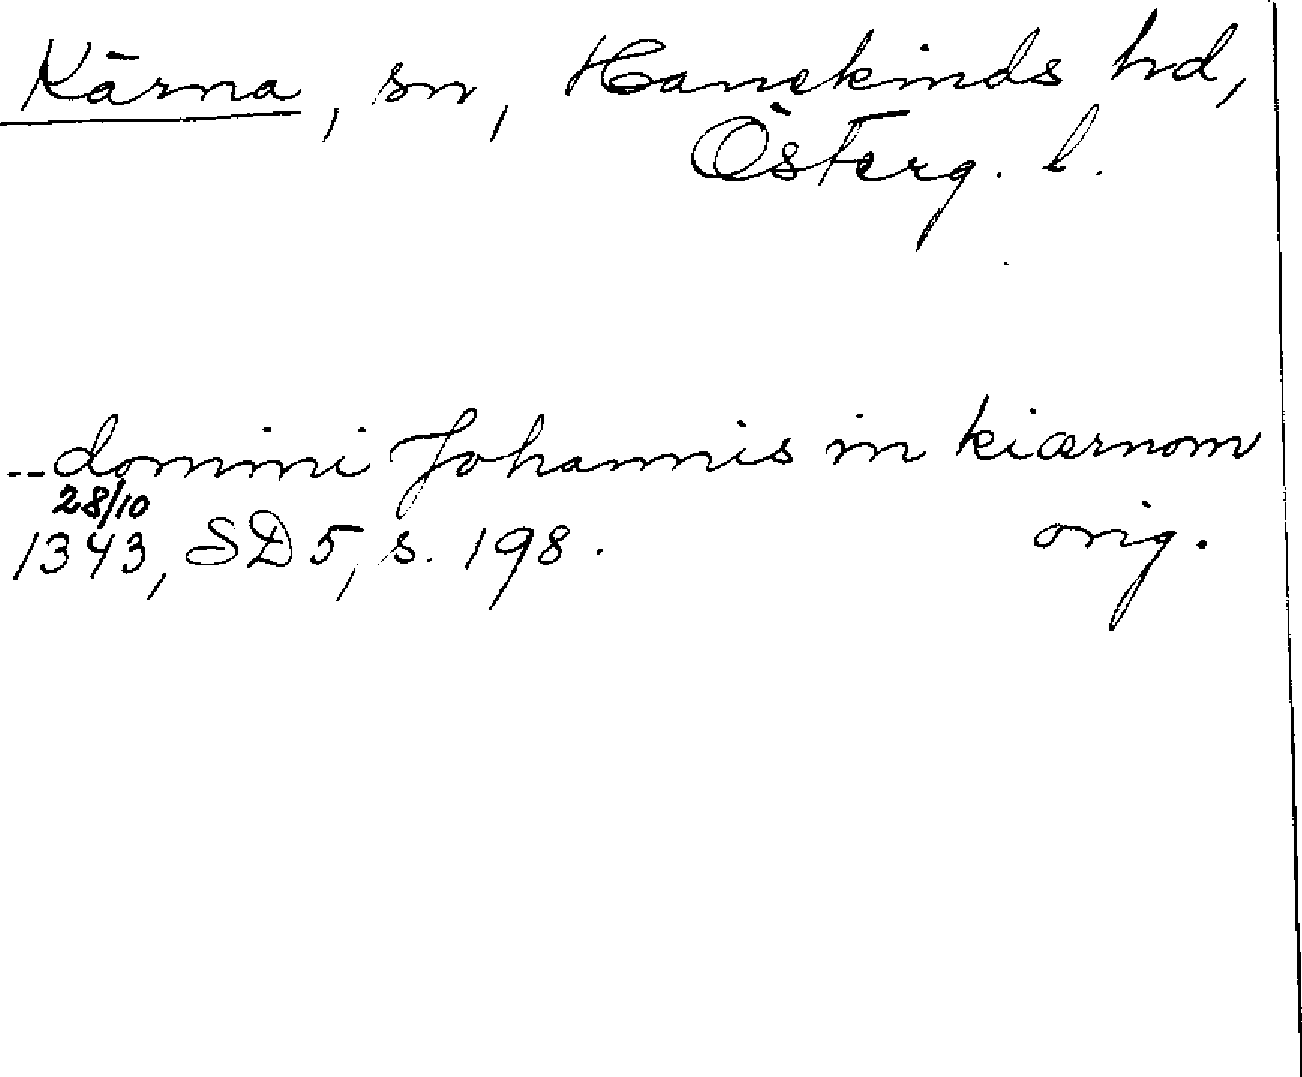 Kärna, sn, Hanekinds hd,
Österg. l.
-- domini Johannis in kiærnom
28/10
1343, SD 5, s. 198. orig.